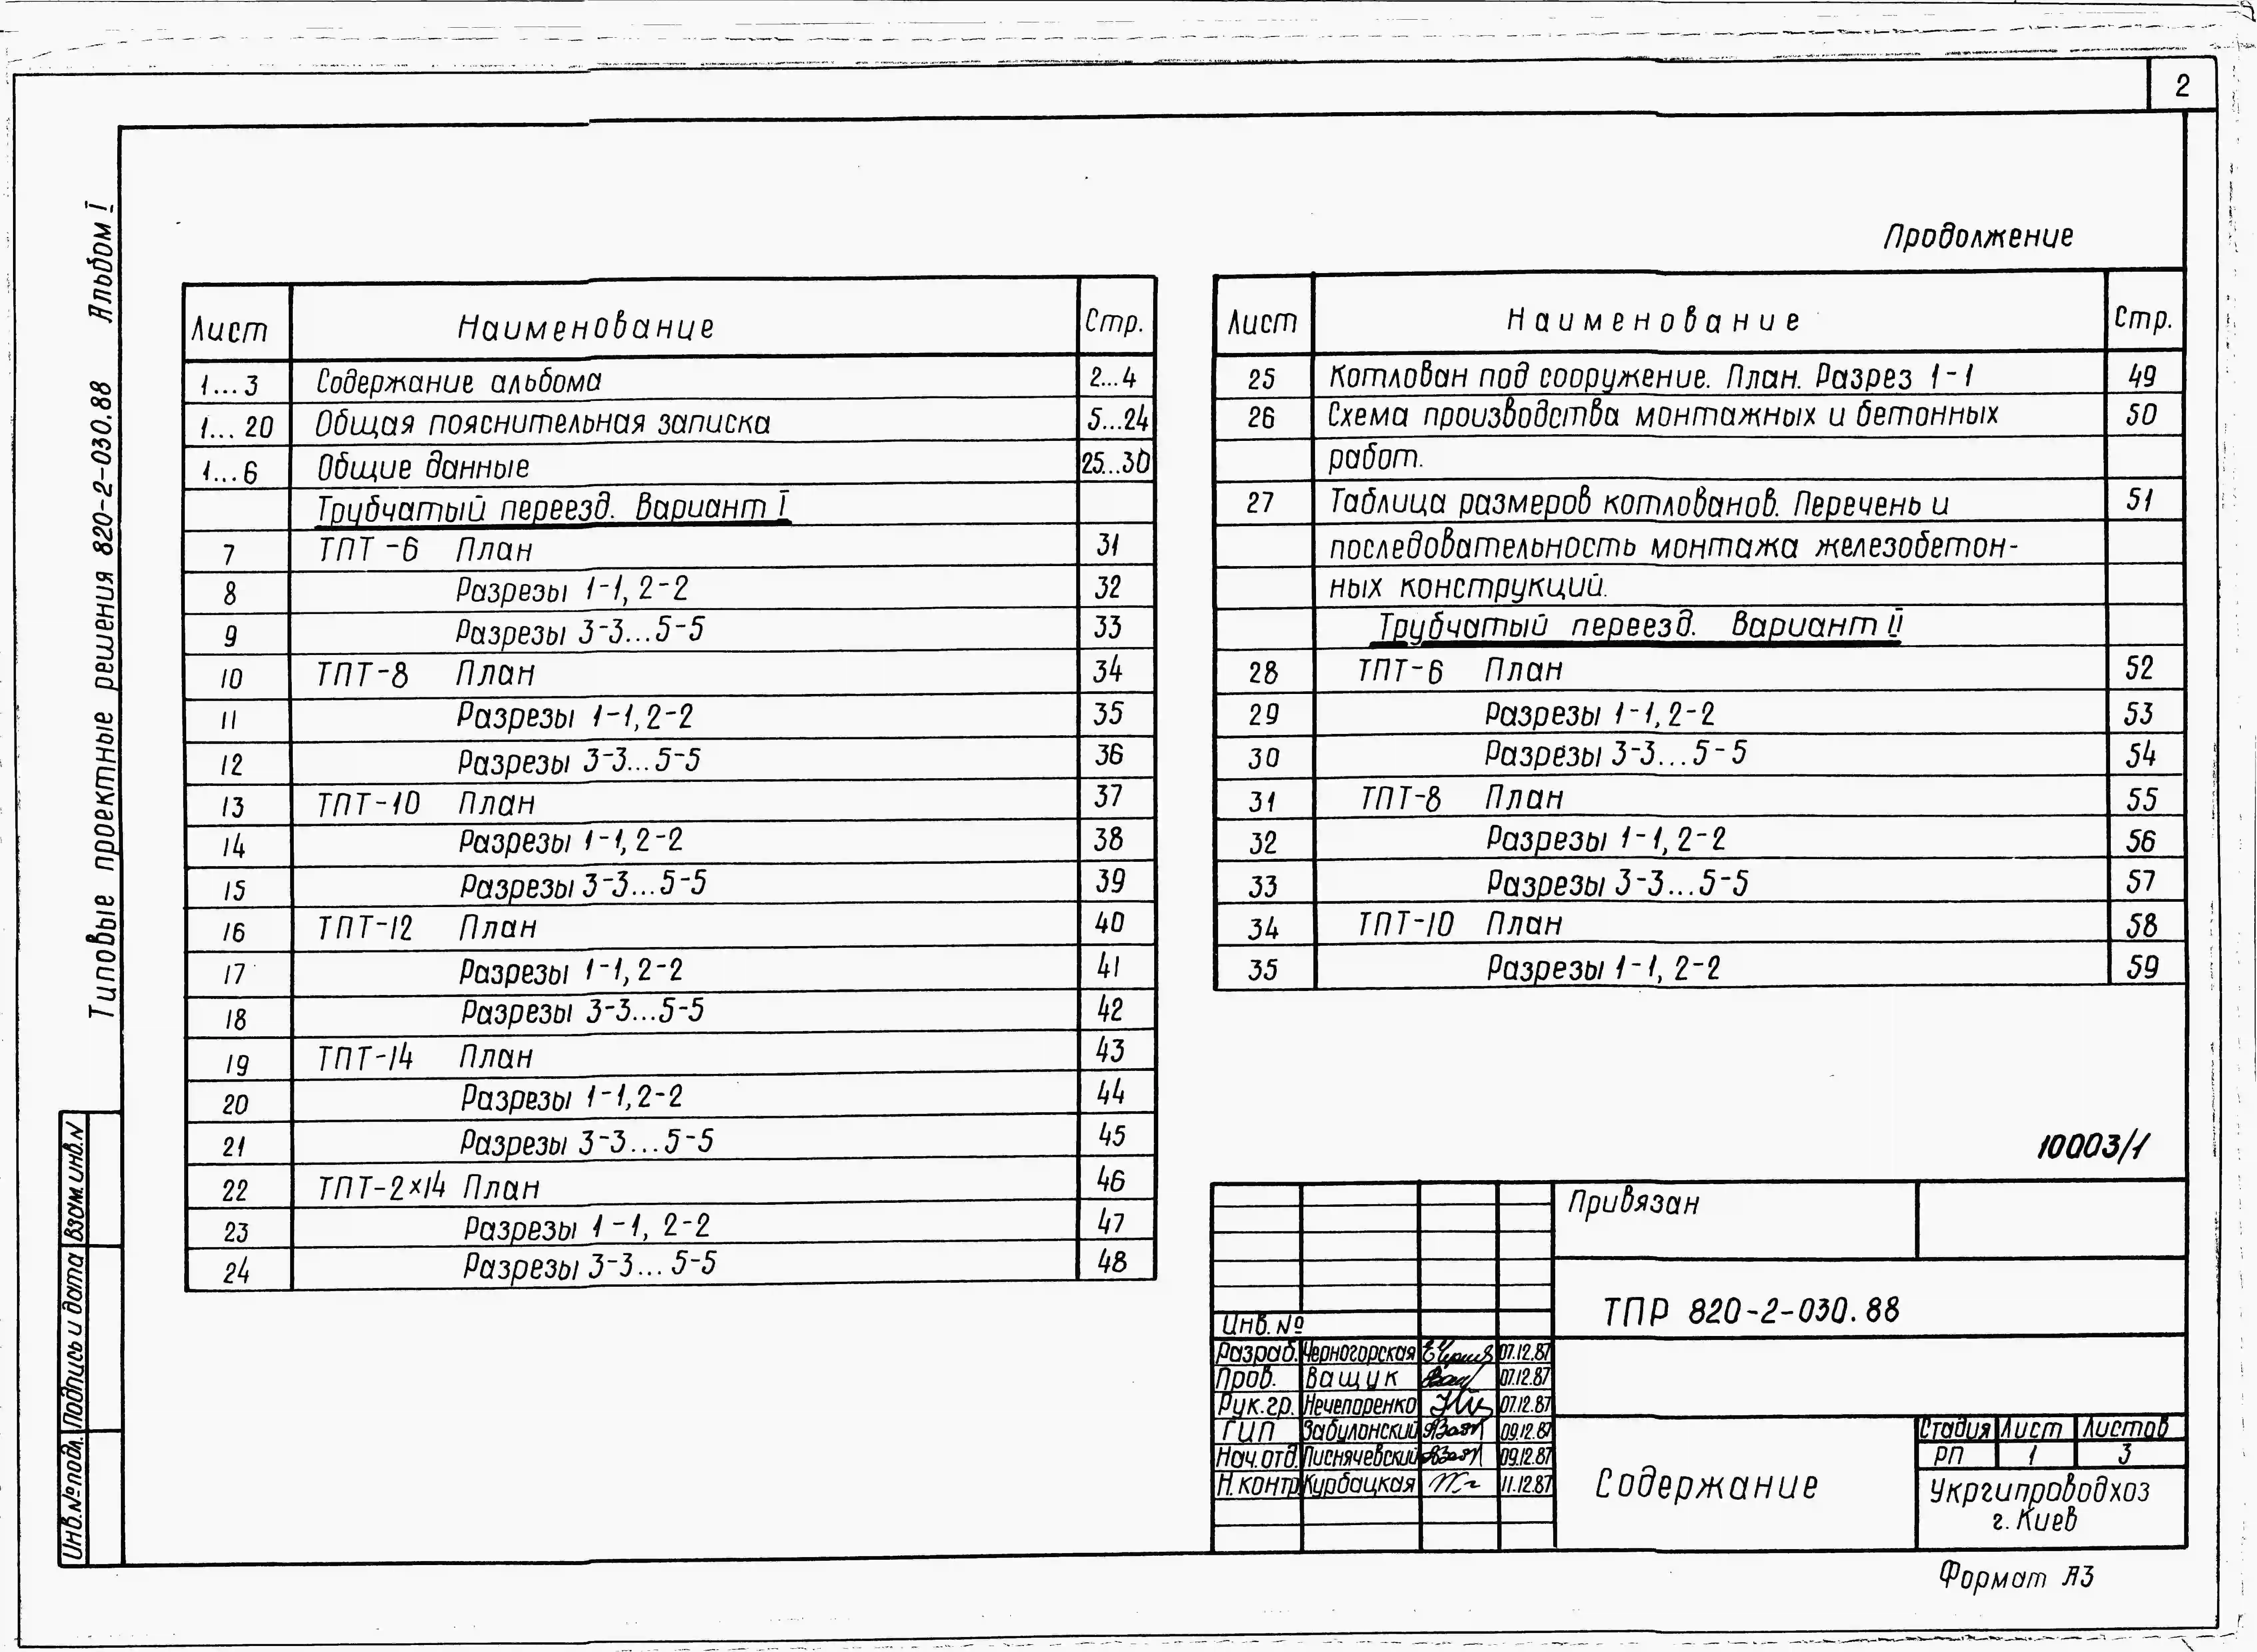 2
Типовые проектные решения 820-2-030.88 Альбом I
Лист Наименование Стр.
1...3 Содержание альбома 2...4
1...20 Общая пояснительная записка 5...24
1...6 Общие данные 25...30
Трубчатый переезд. Вариант I
7 ТПТ-6 План 31
8 Разрезы 1-1, 2-2 32
9 Разрезы 3-3...5-5 33
10 ТПТ-8 План 34
11 Разрезы 1-1, 2-2 35
12 Разрезы 3-3...5-5 36
13 ТПТ-10 План 37
14 Разрезы 1-1, 2-2 38
15 Разрезы 3-3...5-5 39
16 ТПТ-12 План 40
17 Разрезы 1-1, 2-2 41
18 Разрезы 3-3...5-5 42
19 ТПТ-14 План 43
20 Разрезы 1-1, 2-2 44
21 Разрезы 3-3...5-5 45
22 ТПТ-2×14 План 46
23 Разрезы 1-1, 2-2 47
24 Разрезы 3-3...5-5 48
Продолжение
Лист Наименование Стр.
25 Котлован под сооружение. План. Разрез 1-1 49
26 Схема производства монтажных и бетонных 50
работ.
27 Таблица размеров котлованов. Перечень и 51
последовательность монтажа железобетон-
ных конструкций.
Трубчатый переезд. Вариант II
28 ТПТ-6 План 52
29 Разрезы 1-1, 2-2 53
30 Разрезы 3-3...5-5 54
31 ТПТ-8 План 55
32 Разрезы 1-1, 2-2 56
33 Разрезы 3-3...5-5 57
34 ТПТ-10 План 58
35 Разрезы 1-1, 2-2 59
10003/1
Привязан
Инв. №
ТПР 820-2-030.88
Разраб. Черногорская 07.12.87
Пров. Ващук 07.12.87
Рук.гр. Нечепоренко 07.12.87
ГИП Забулонский 09.12.87
Нач.отд. Лиснячевский 09.12.87
Н.контр Курбацкая 11.12.87
Содержание
Стадия Лист Листов
РП 1 3
Укргипроводхоз
г. Киев
Формат А3
Инв.№подл. Подпись и дата Взам.инв.N